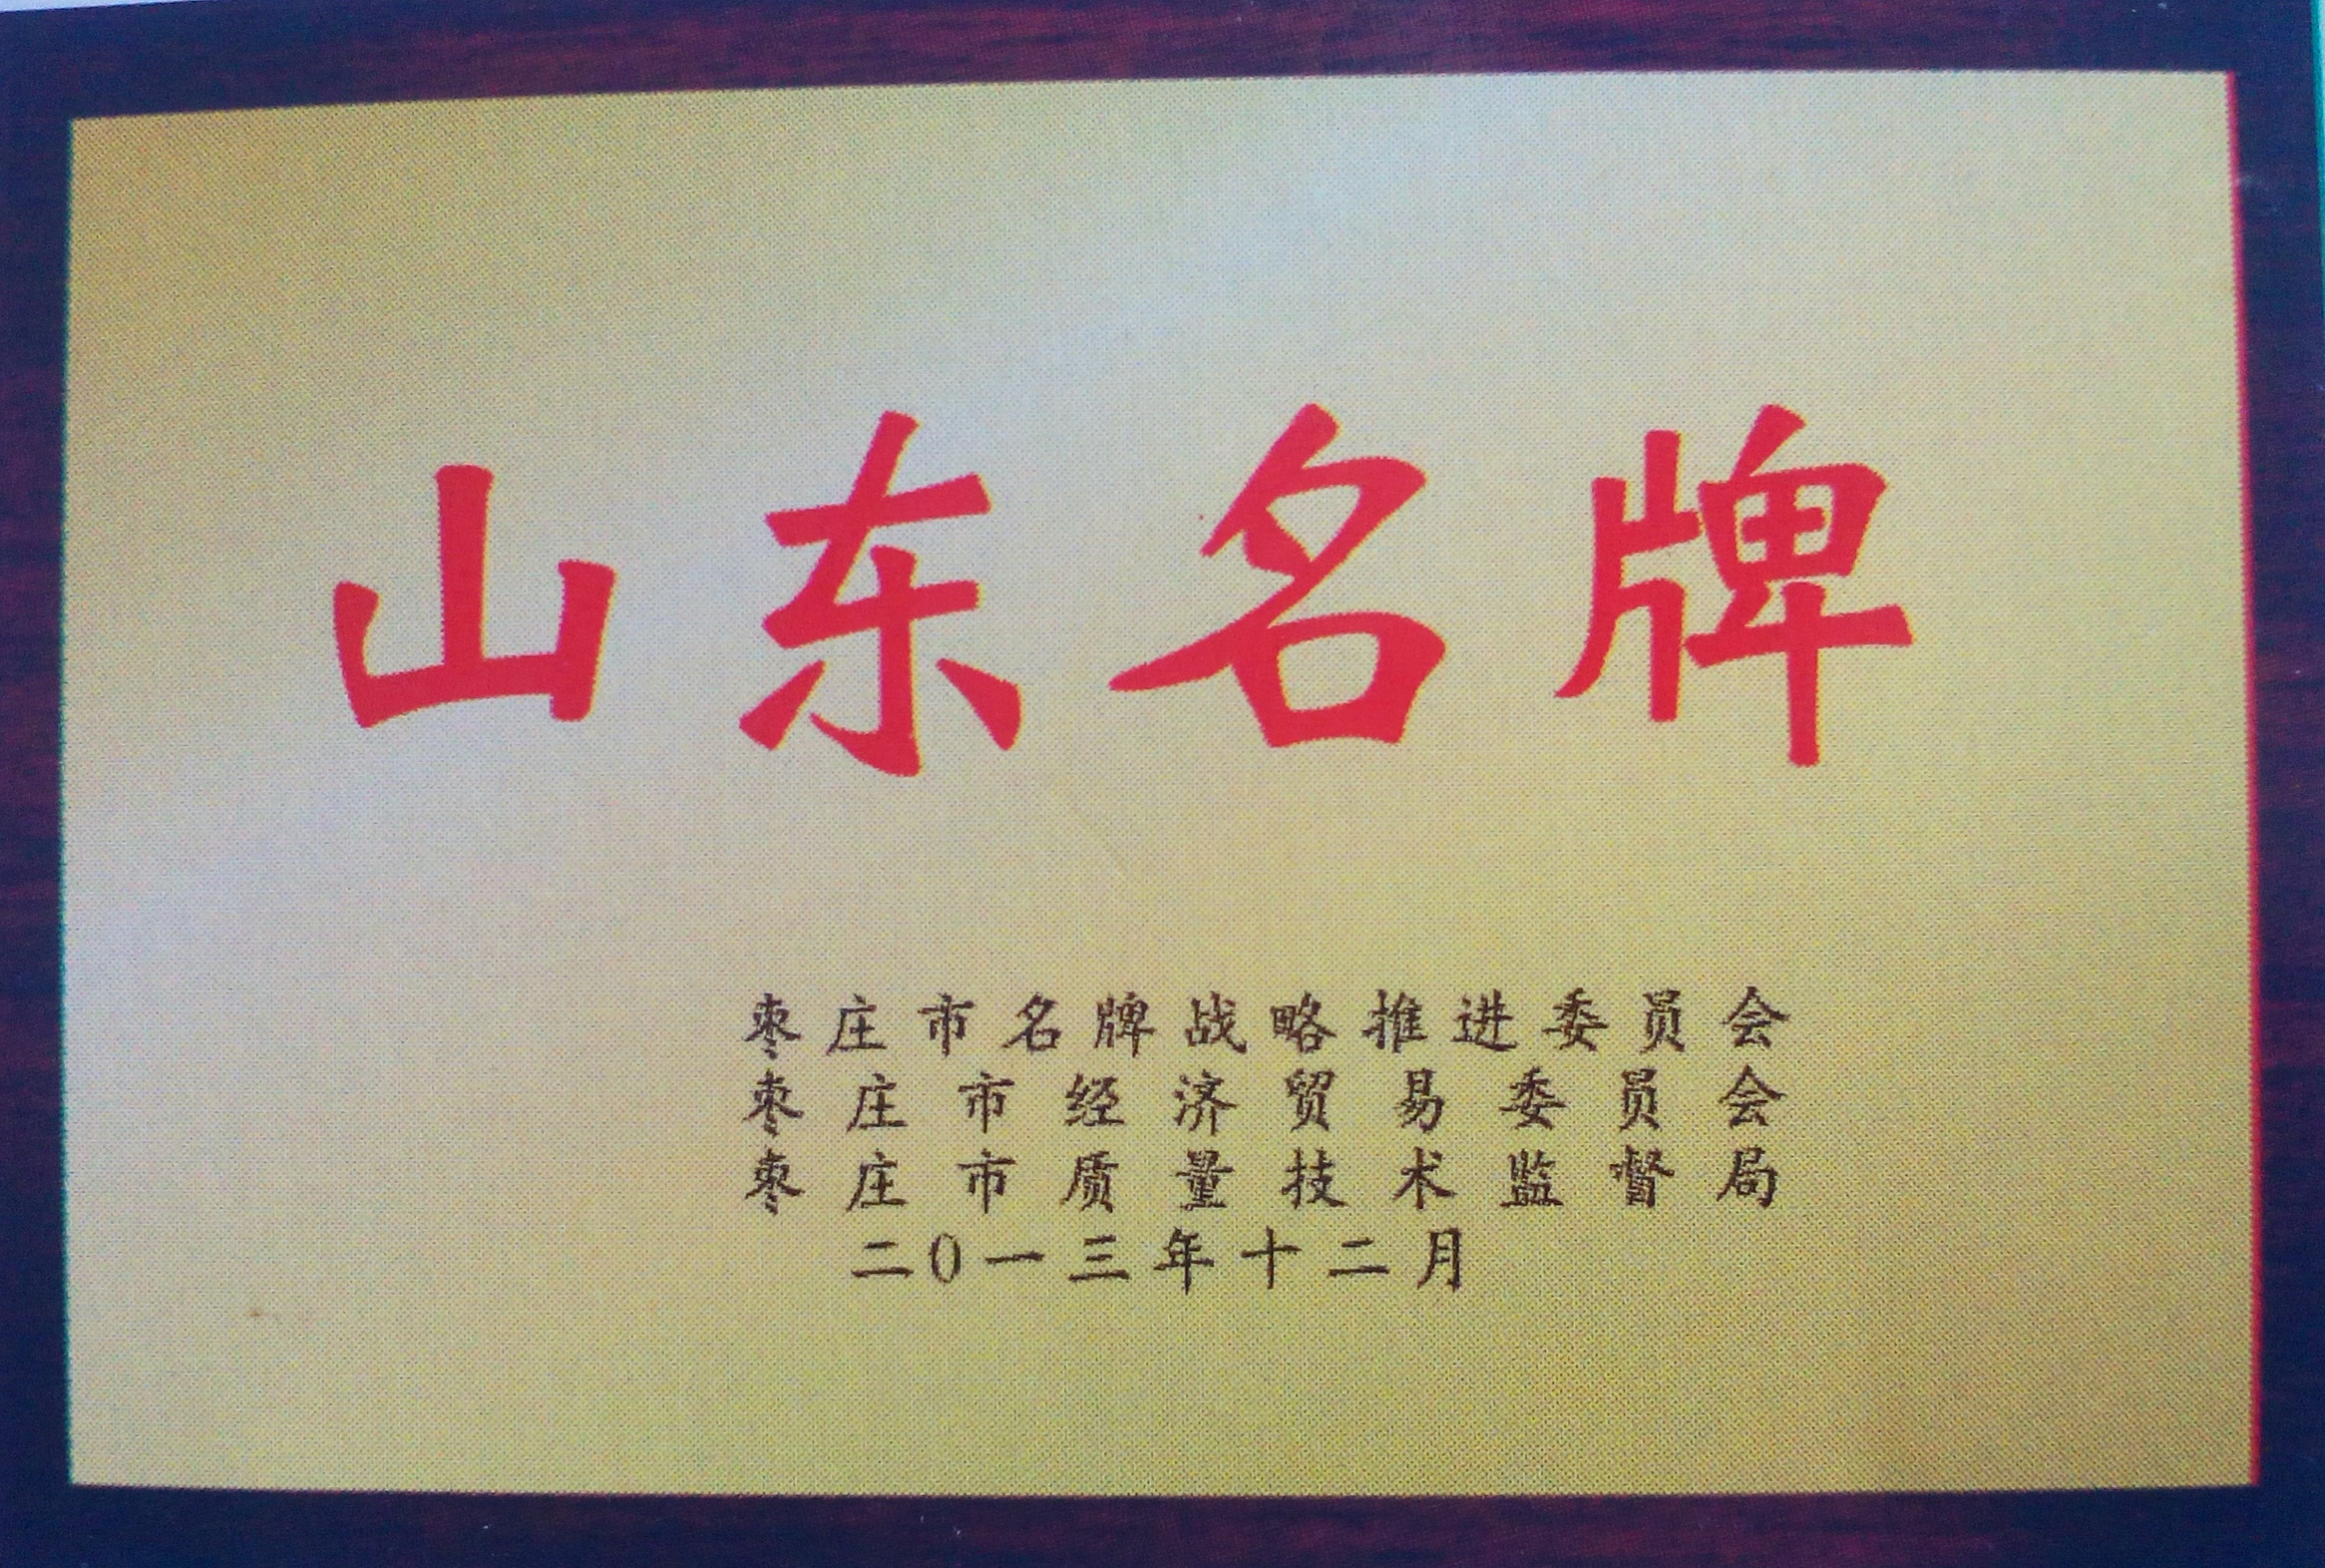 山东名牌
枣庄市名牌战略推进委员会
枣庄市经济贸易委员会
枣庄市质量技术监督局
二0一三年十二月